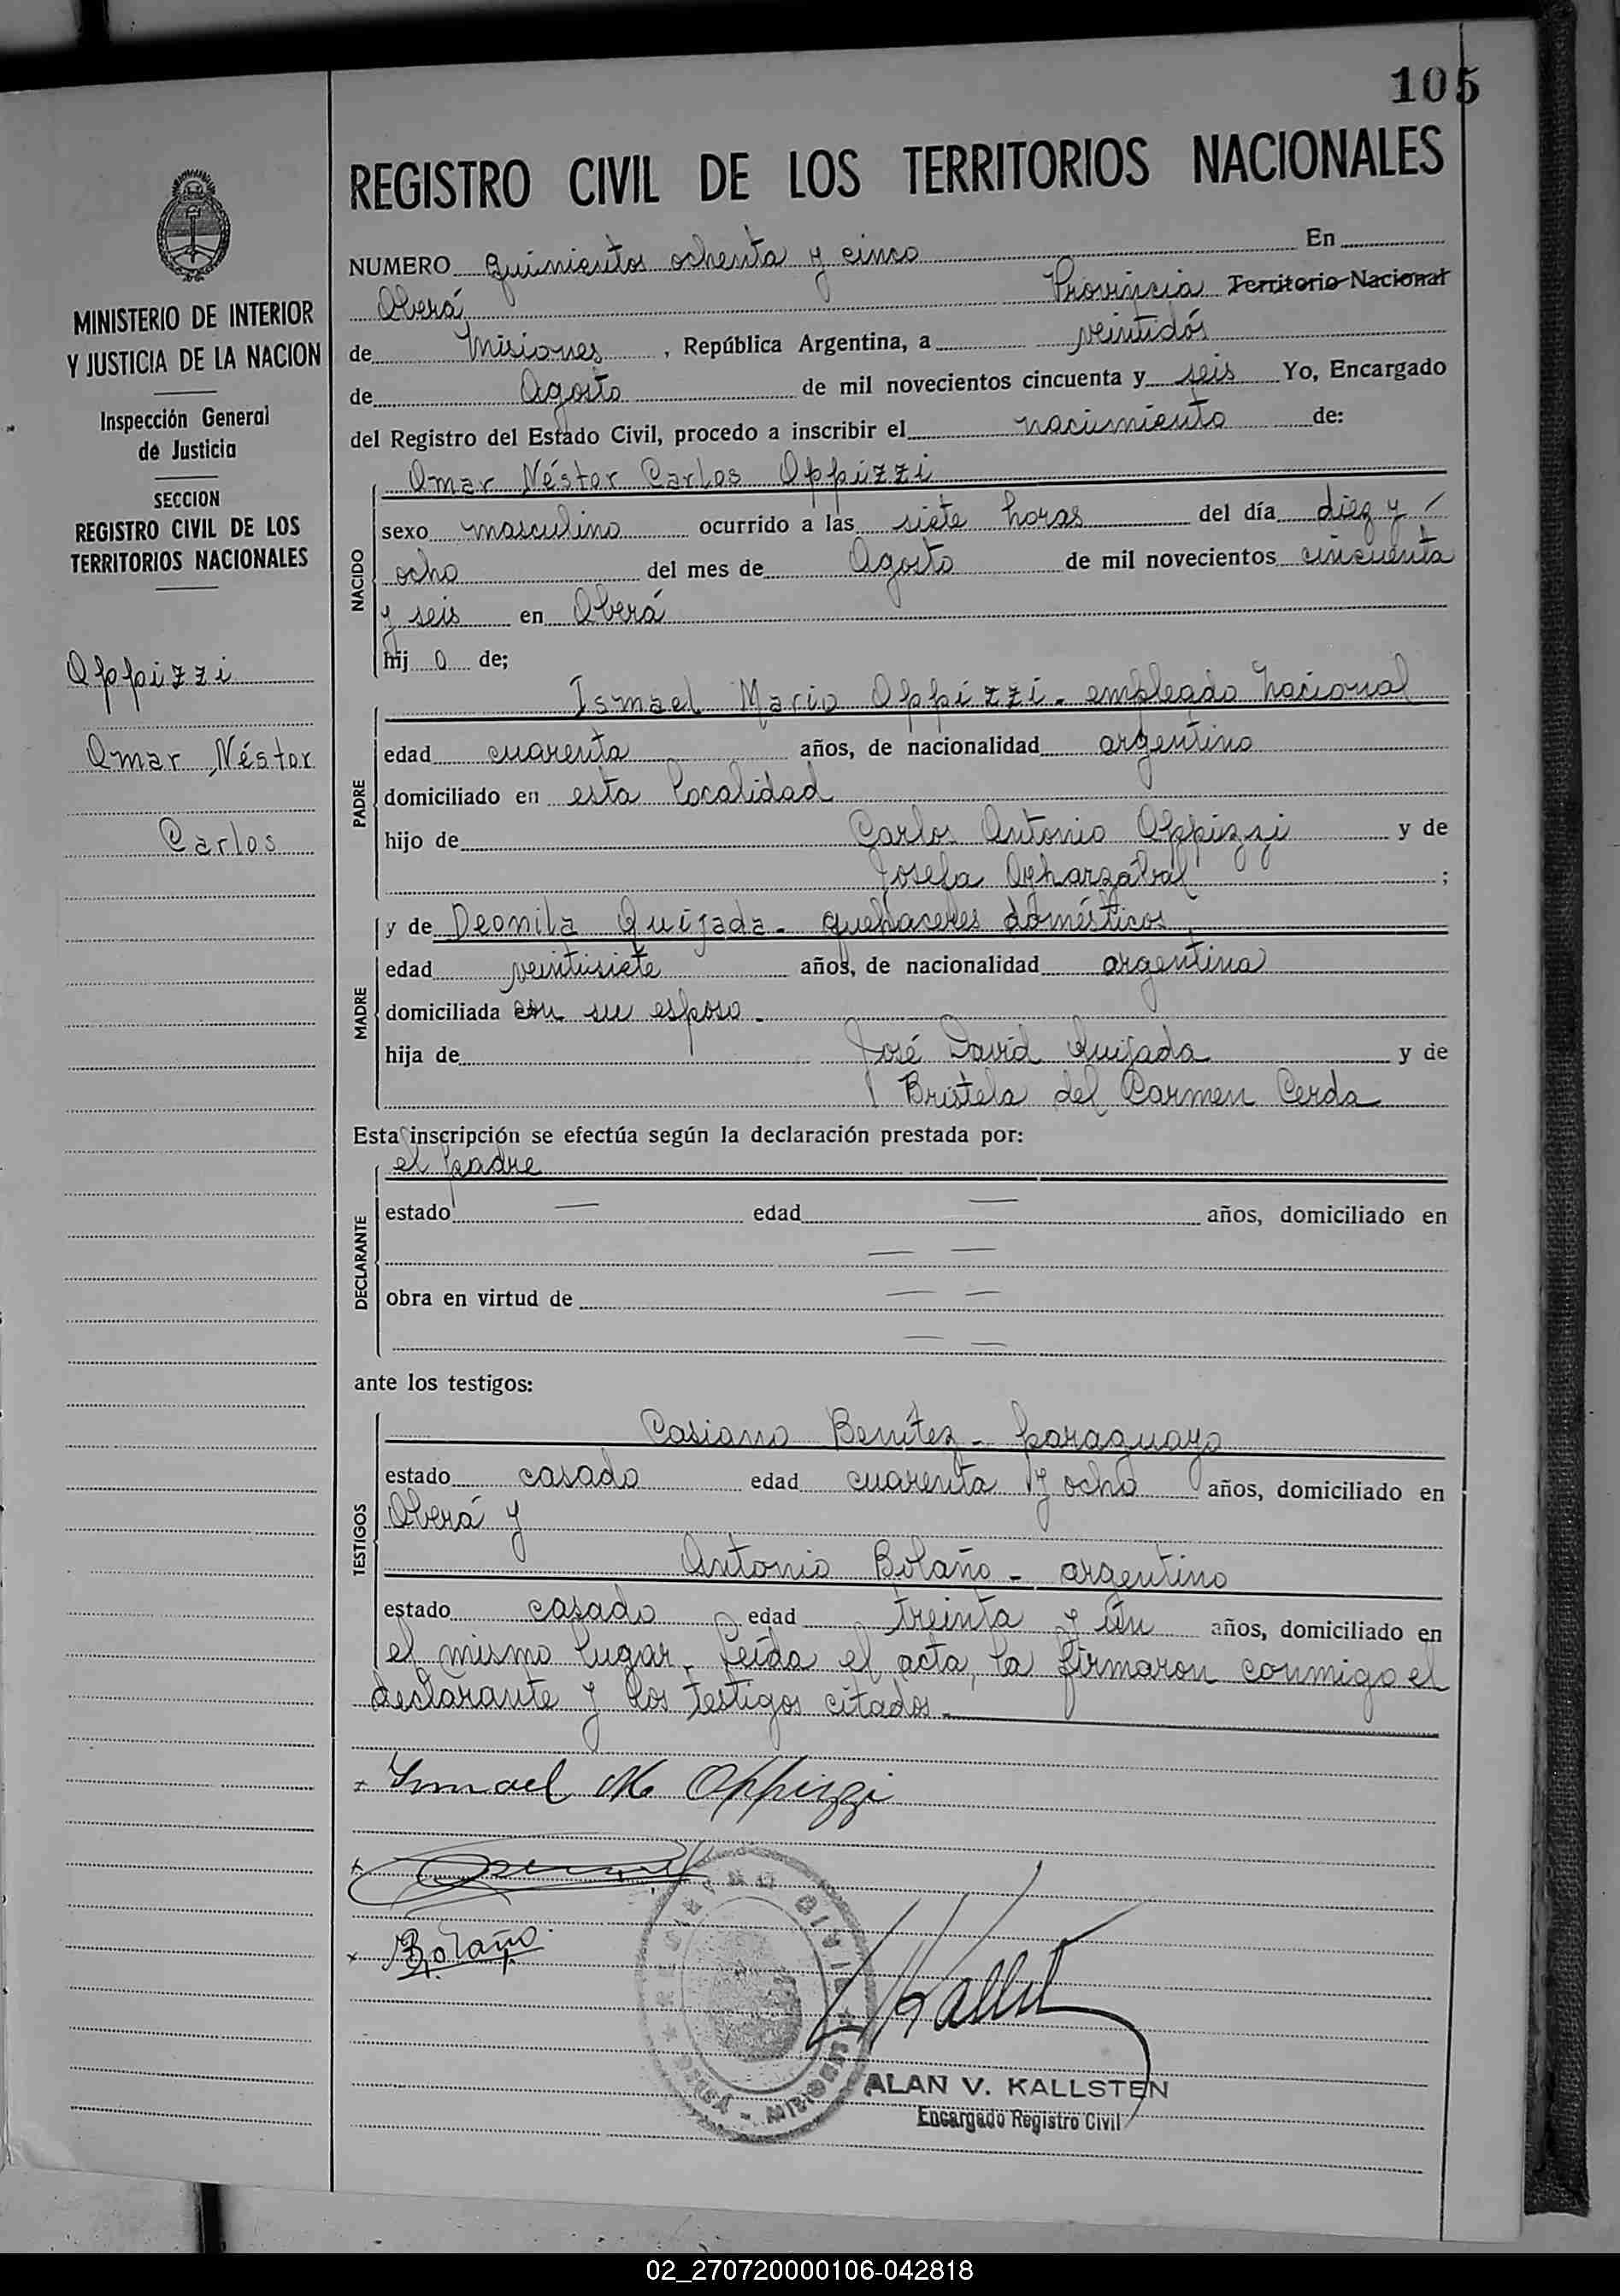 105
REGISTRO CIVIL DE LOS TERRITORIOS NACIONALES
MINISTERIO DE INTERIOR
Y JUSTICIA DE LA NACION
Inspección General
de Justicia
SECCION
REGISTRO CIVIL DE LOS
TERRITORIOS NACIONALES
Oppizzi
Omar Néstor
Carlos
NUMERO quinientos ochenta y cinco En
Oberá Provincia Territorio Nacional
de Misiones, República Argentina, a veintidós
de Agosto de mil novecientos cincuenta y seis Yo, Encargado
del Registro del Estado Civil, procedo a inscribir el nacimiento de:
NACIDO
Omar Néstor Carlos Oppizzi
sexo masculino ocurrido a las siete horas del día diez y
ocho del mes de Agosto de mil novecientos cincuenta
y seis en Oberá
hij o de;
PADRE
Ismael Mario Oppizzi - empleado nacional
edad cuarenta años, de nacionalidad argentino
domiciliado en esta localidad
hijo de Carlos Antonio Oppizzi y de
Josefa Oyharzábal ;
MADRE
y de Deonila Quijada - quehaceres domésticos,
edad veintisiete años, de nacionalidad argentina
domiciliada con su esposo -
hija de José David Quijada y de
Bristela del Carmen Cerda
Esta inscripción se efectúa según la declaración prestada por:
DECLARANTE
el padre
estado — edad — años, domiciliado en
— —
obra en virtud de — —
— —
ante los testigos:
TESTIGOS
Casiano Benítez - paraguayo
estado casado edad cuarenta y ocho años, domiciliado en
Oberá y
Antonio Bolaño - argentino
estado casado edad treinta y un años, domiciliado en
el mismo lugar. Leída el acta, la firmaron conmigo el
declarante y los testigos citados -
x Ismael M Oppizzi
x
x Bolaño
Kallst
REGISTRO CIVIL
ALAN V. KALLSTEN
Encargado Registro Civil
02_270720000106-042818